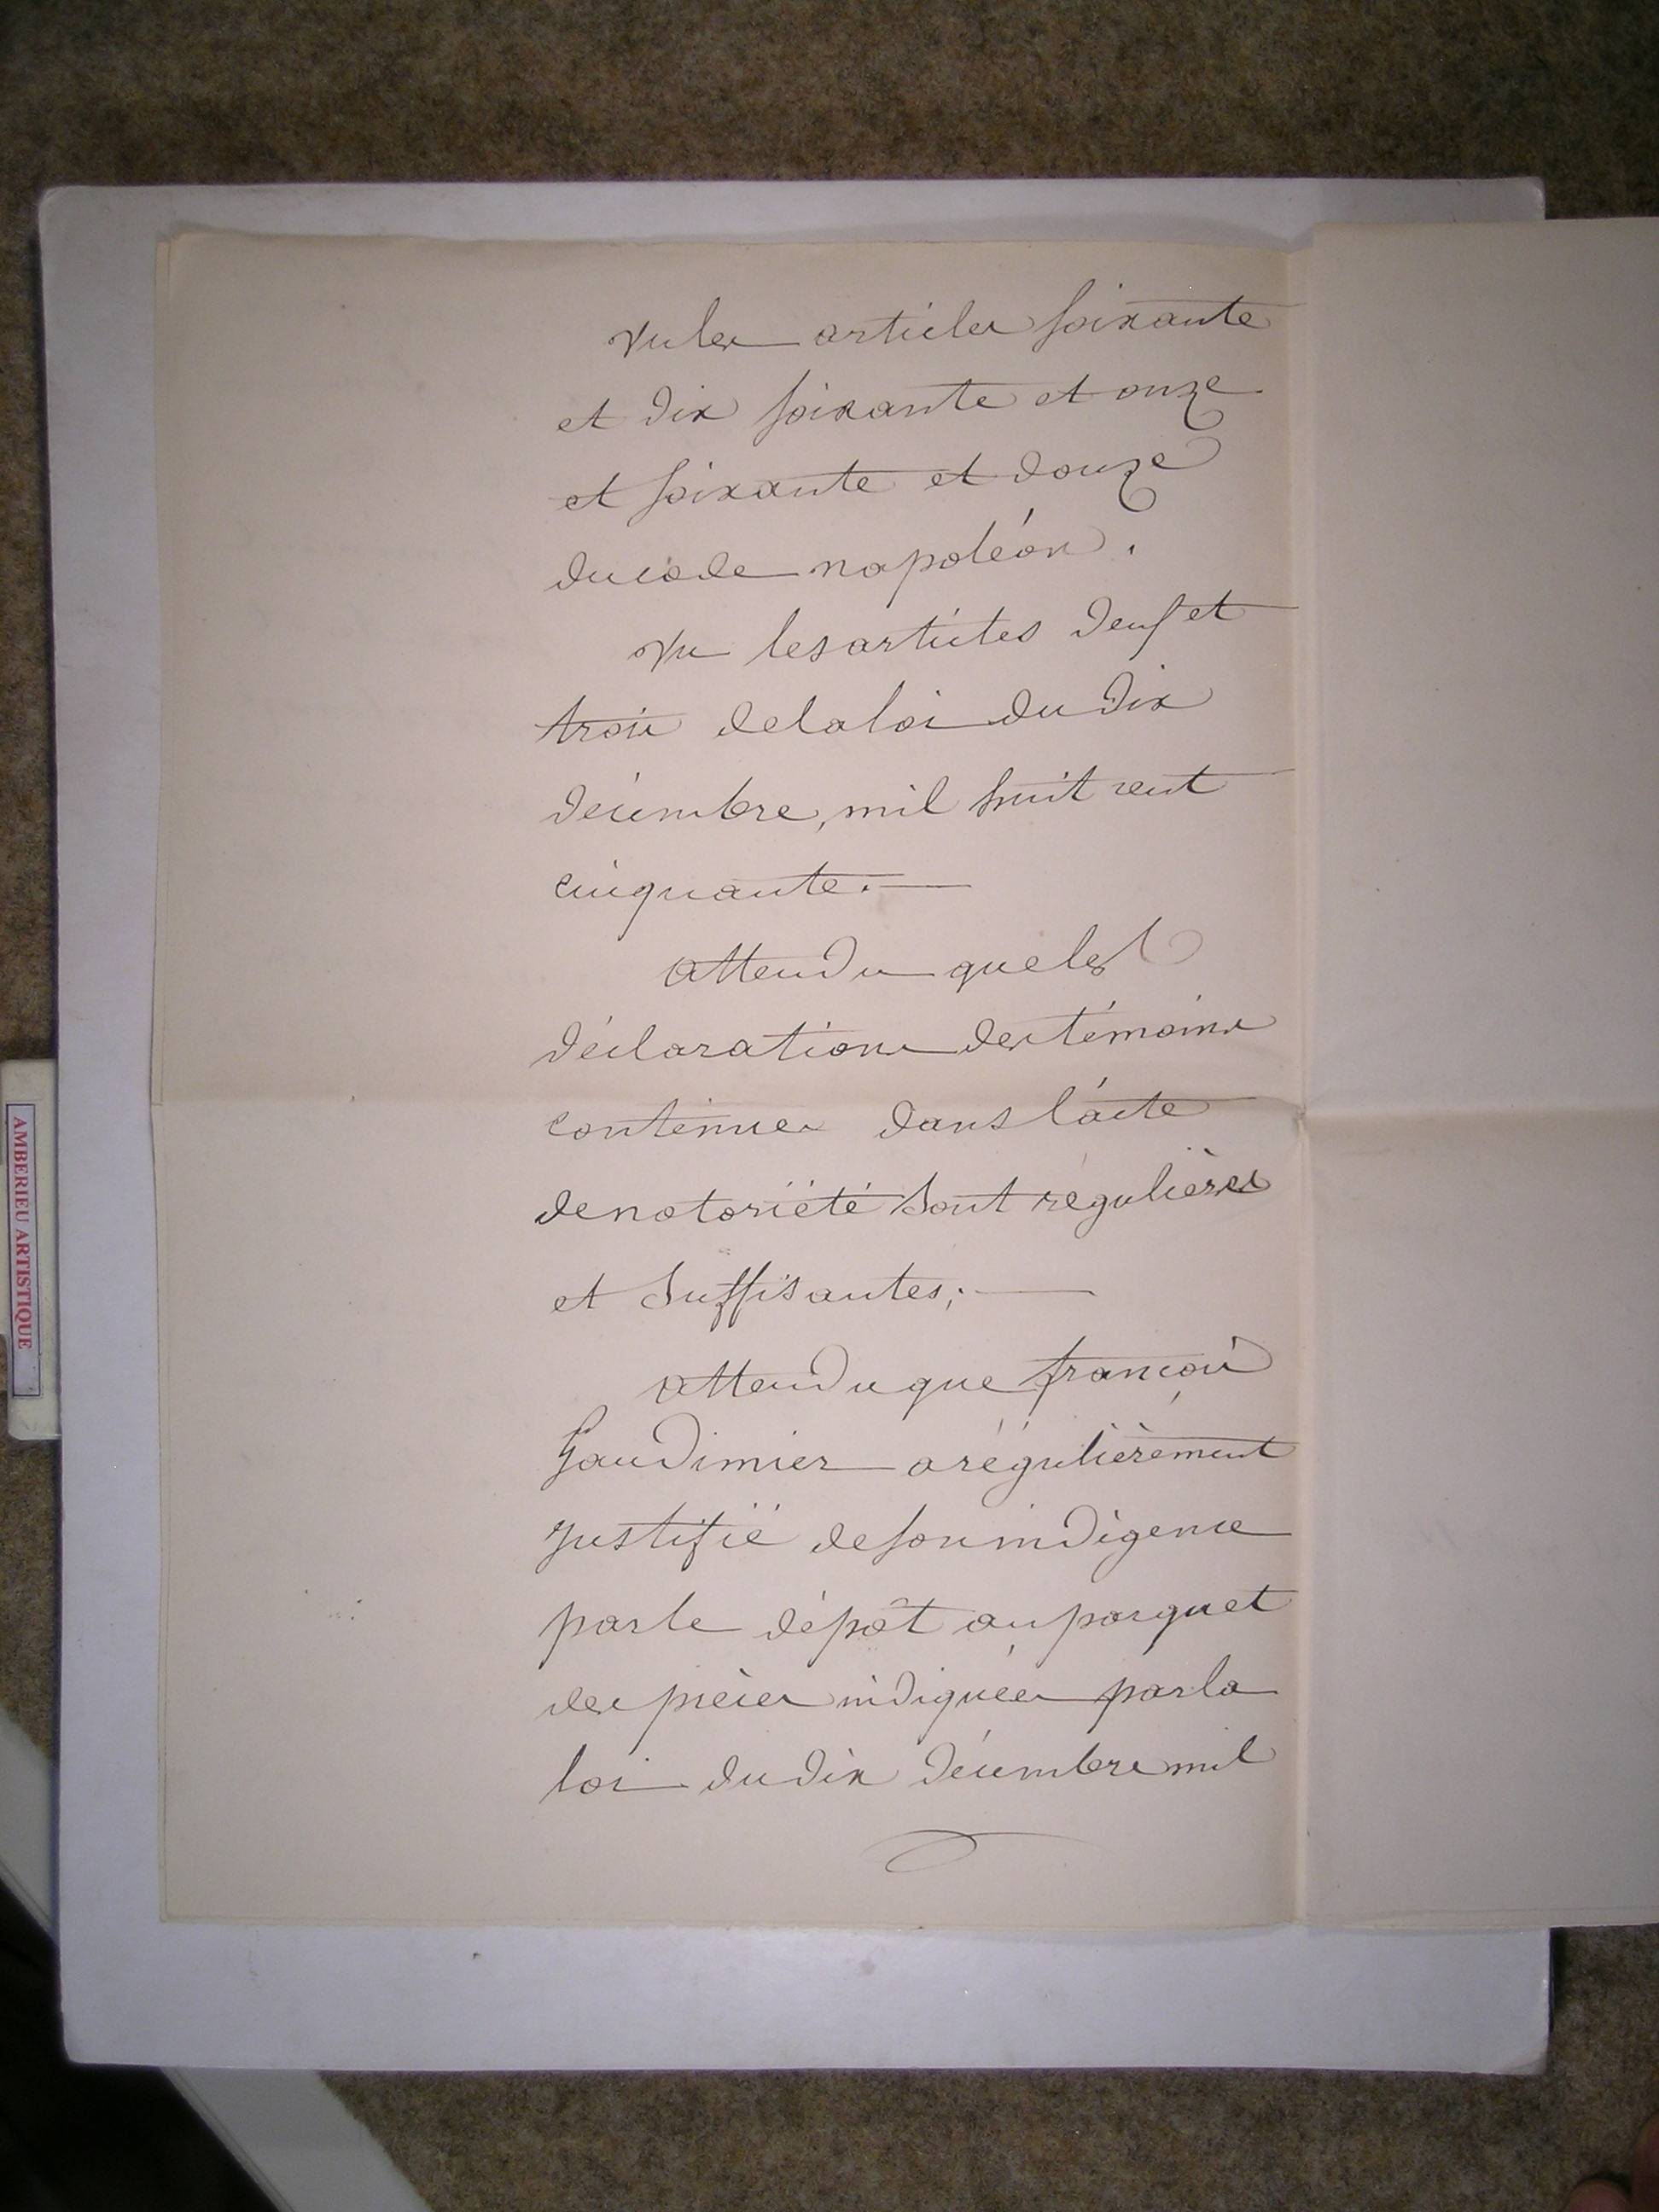 Vu les articles soixante
et dix soixante et onze
et soixante et douze
du code napoléon.
Vu les articles deux et
trois de la loi du dix
décembre, mil huit cent
cinquante.
attendu que les
déclarations des témoins
contenues dans l'acte
de notoriété sont régulières
et suffisantes;
attendu que françois
Gaudimier a régulièrement
justifié de son indigence
par le dépôt au parquet
des pièces indiquées par la
loi du dix décembre mil
AMBERIEU ARTISTIQUE